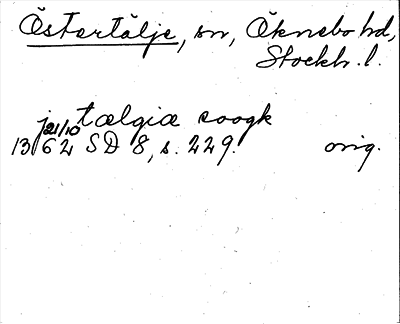 Östertälje, sn, Öknebo hd,
Stockh. l.
j tælgiæ soogk
1362 21/10 SD 8, s. 229. orig.